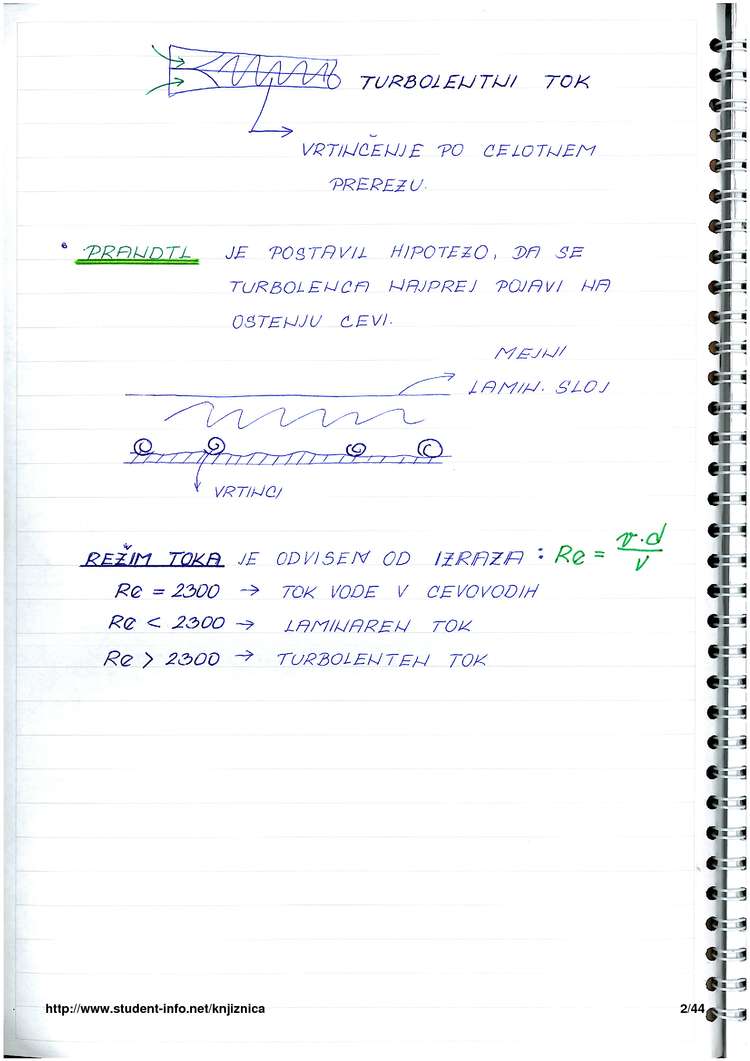 TURBOLENTNI TOK
VRTINČENJE PO CELOTNEM
PREREZU.
• PRANDTL JE POSTAVIL HIPOTEZO, DA SE
TURBOLENCA NAJPREJ POJAVI NA
OSTENJU CEVI.
MEJNI
LAMIN. SLOJ
VRTINCI
REŽIM TOKA JE ODVISEN OD IZRAZA : Re = v·d/ν
Re = 2300 → TOK VODE V CEVOVODIH
Re < 2300 → LAMINAREN TOK
Re > 2300 → TURBOLENTEN TOK
http://www.student-info.net/knjiznica 2/44